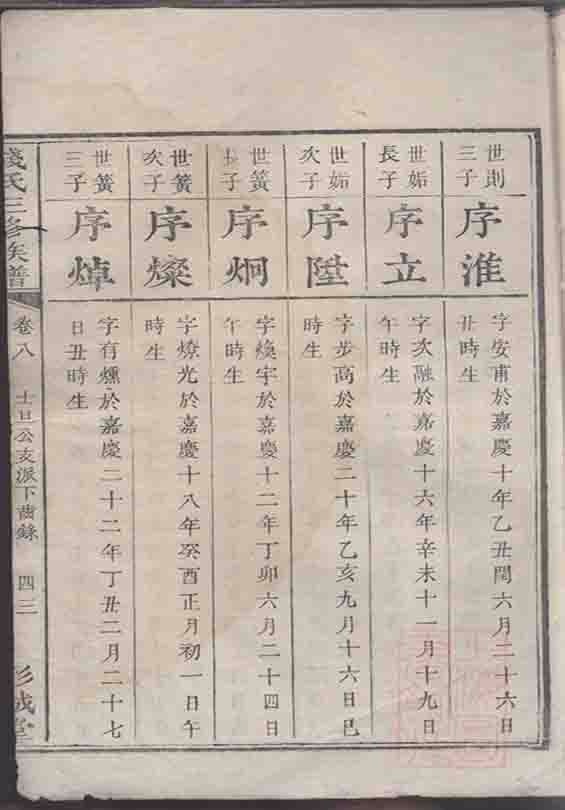 世則
三子
序淮
字安甫於嘉慶十年乙丑閏六月二十六日
丑時生
世姤
長子
序立
字次融於嘉慶十六年辛未十一月十九日
午時生
世姤
次子
序陞
字步高於嘉慶二十年乙亥九月十六日巳
時生
世簧
長子
序炯
字煥宇於嘉慶十二年丁卯六月二十四日
午時生
世簧
次子
序燦
字燎光於嘉慶十八年癸酉正月初一日午
時生
世簧
三子
序焯
字有燻於嘉慶二十二年丁丑二月二十七
日丑時生
錢氏三修族譜
卷八
士旦公支派下齒錄
四三
彭城堂